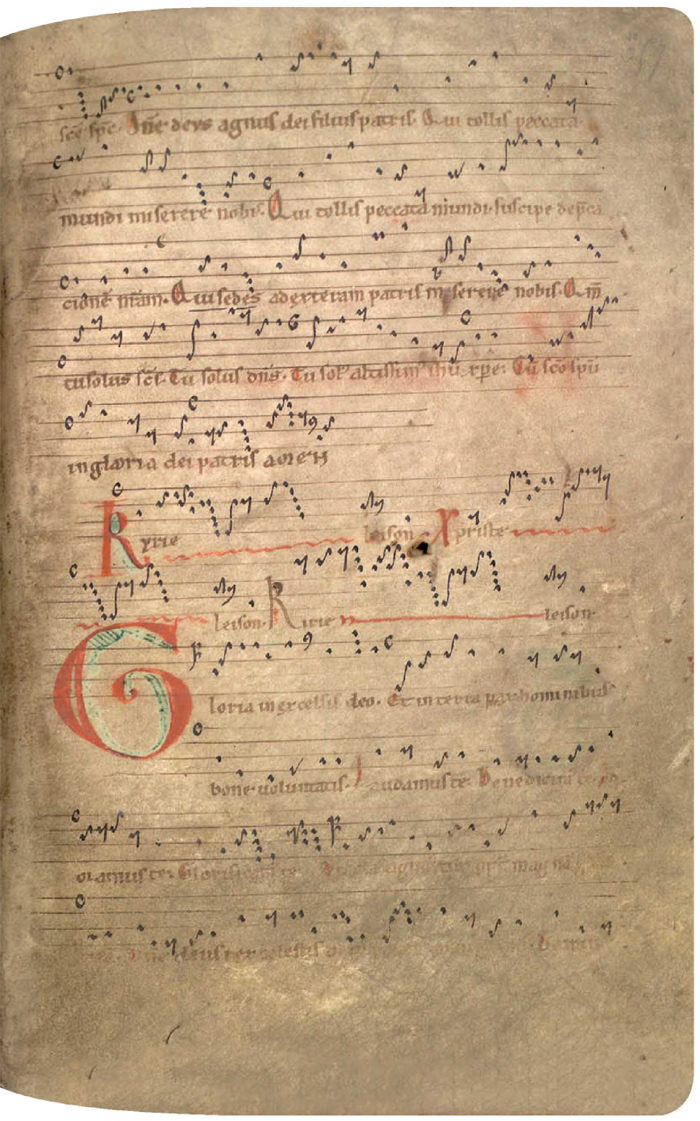 sce spc. Dne deus agnus dei filius patris. Qui tollis peccata
mundi miserere nobis. Qui tollis peccata mundi suscipe depca
cione nram. Qui sedes ad exteram patris miserere nobis. Qm
tu solus scs. Tu solus dns. Tu sol altissim ihu xpe. Cu sco spu
in gloria dei patris amen
Kyrie leison Xpriste
leison. Kirie leison.
Gloria in excelsis deo. Et in terra pax hominibus
bone uoluntatis. Laudamus te. Benedicim te. ad
oramus te. Glorificam te. mag na
Dne deus rex celestis